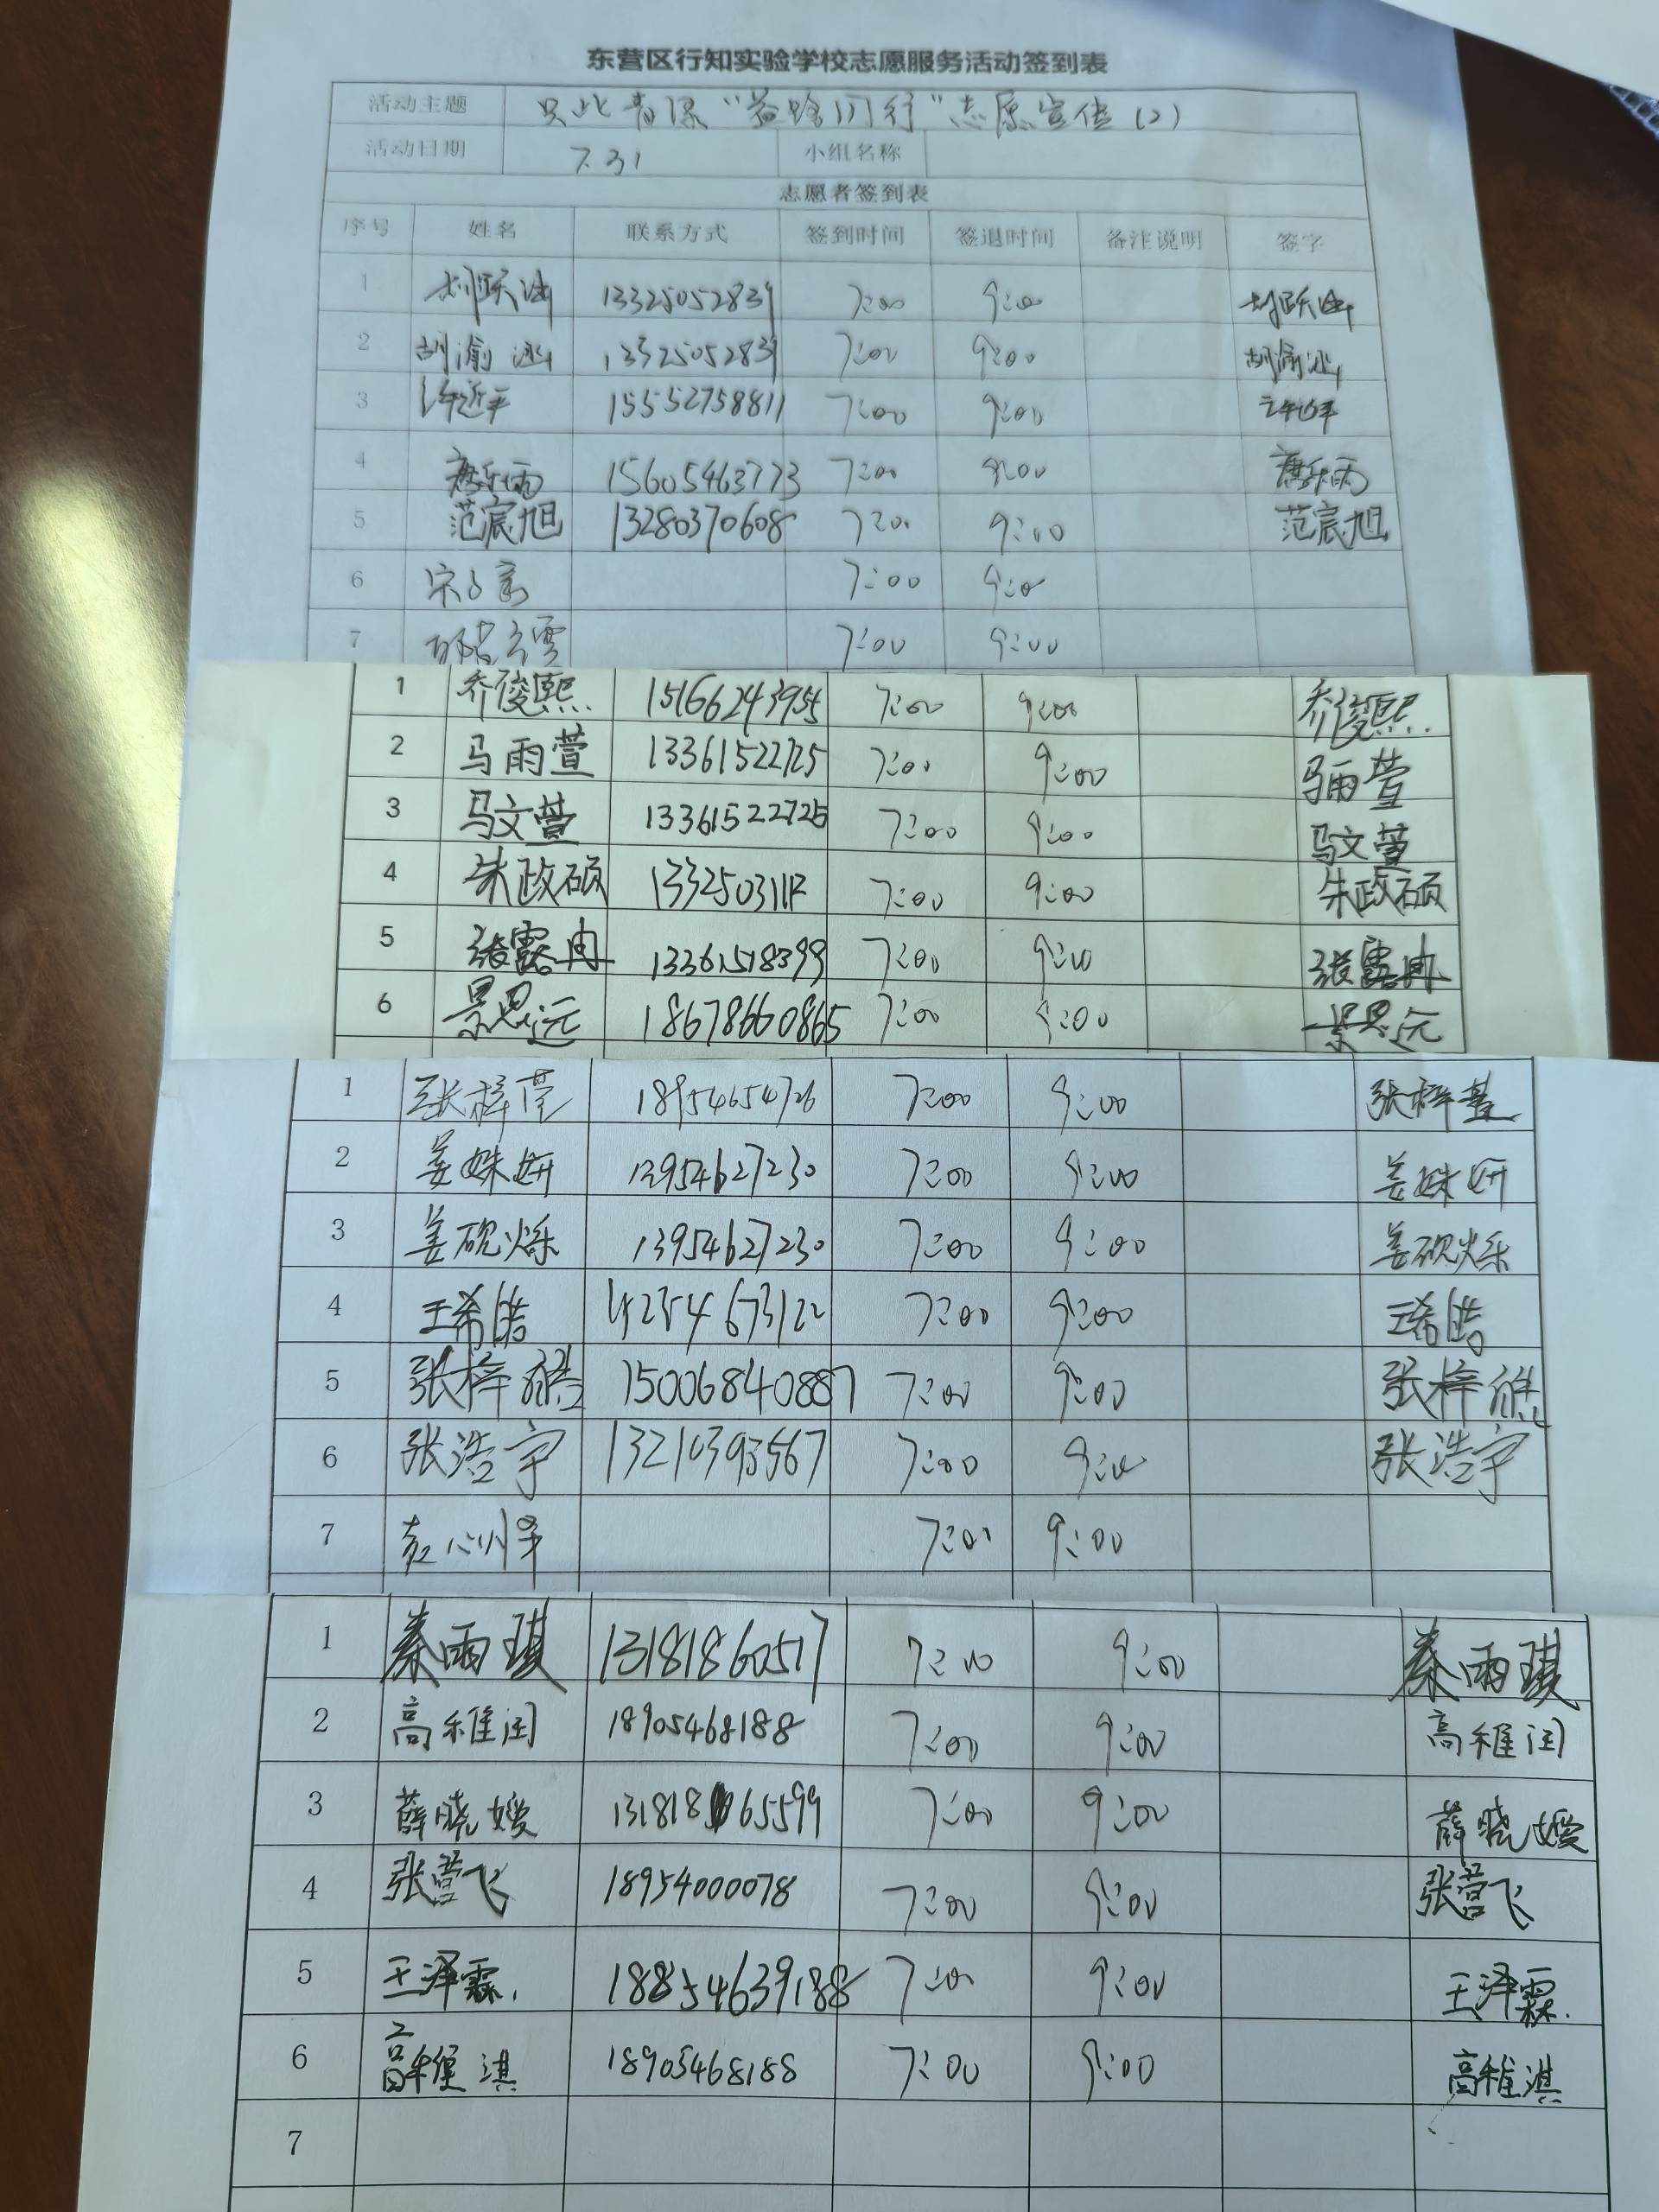 东营区行知实验学校志愿服务活动签到表
活动主题 只此青绿“益路同行”志愿宣传(2)
活动日期 7.31 小组名称
志愿者签到表
序号 姓名 联系方式 签到时间 签退时间 备注说明 签字
1 胡跃涵 13325052839 7:00 9:00 胡跃涵
2 胡渝涵 13325052839 7:00 9:00 胡渝涵
3 许延平 15552758811 7:00 9:00
4 唐乐雨 15605463773 7:00 9:00 唐乐雨
5 范宸旭 13280370608 7:00 9:00 范宸旭
6 宋子言 7:00 9:00
7 7:00 9:00
1 乔俊熙 15166243955 7:00 9:00 乔俊熙
2 马雨萱 13361522725 7:00 9:00 马雨萱
3 马文萱 13361522725 7:00 9:00 马文萱
4 朱政硕 7:00 9:00 朱政硕
5 张露冉 13361518399 7:00 9:00 张露冉
6 景思远 18678660865 7:00 9:00 景思远
1 张梓萱 18954654726 7:00 9:00 张梓萱
2 姜姝妍 13954627230 7:00 9:00 姜姝妍
3 姜砚烁 13954627230 7:00 9:00 姜砚烁
4 王希皓 7:00 9:00 王希皓
5 张梓皓 15006840887 7:00 9:00 张梓
6 张浩宇 13210393567 7:00 9:00 张浩宇
7 7:00 9:00
1 秦雨琪 13181860517 7:00 9:00 秦雨琪
2 高稚闰 18905468188 7:00 9:00 高稚闰
3 薛晓嫒 13181865599 7:00 9:00 薛晓嫒
4 张营飞 18954000078 7:00 9:00 张营飞
5 王泽霖. 18854639188 7:00 9:00 王泽霖.
6 高稚淇 18905468188 7:00 9:00 高稚淇
7